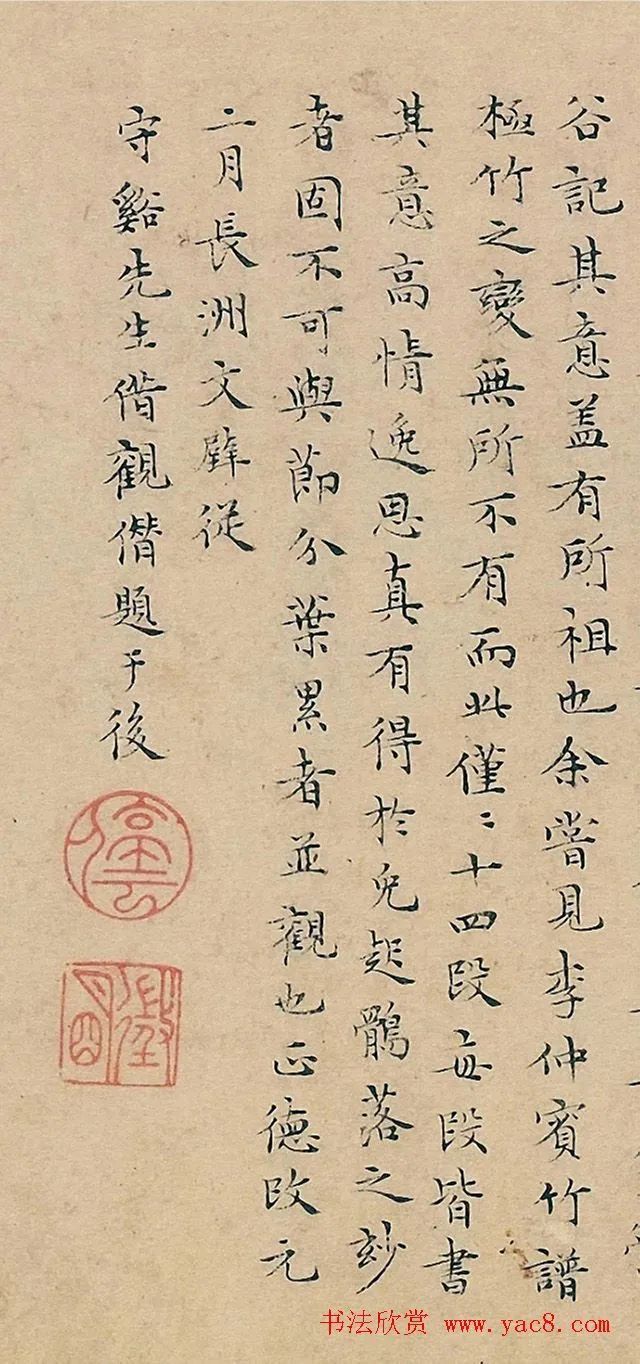 谷記其意盖有所祖也余嘗見李仲賓竹譜
極竹之變無所不有而此僅〻十四段每段皆書
其意高情逸思真有得於兔起鶻落之玅
者固不可與節分葉累者並觀也正德改元
二月長洲文壁從
守谿先生借觀僣題于後
停雲
书法欣赏 www.yac8.com